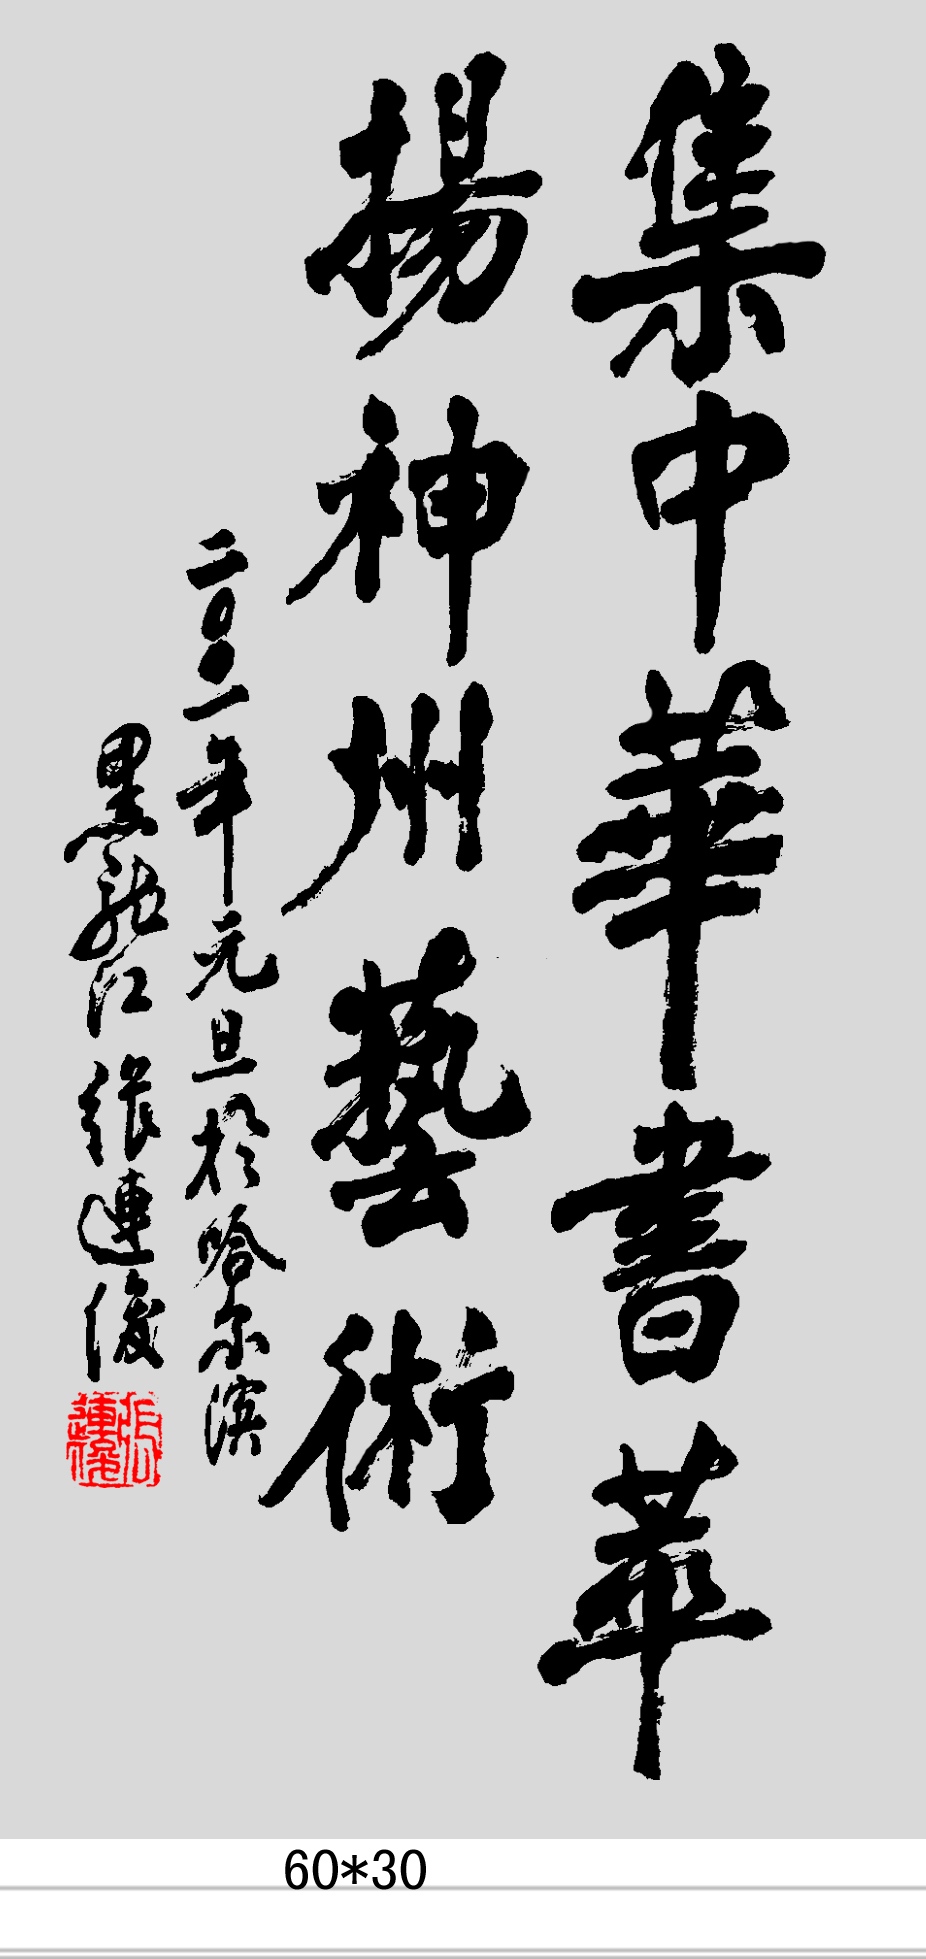 集中華書萃
揚神州藝術
二〇〇一年元旦於哈尔濱
黑龍江張連俊
60*30